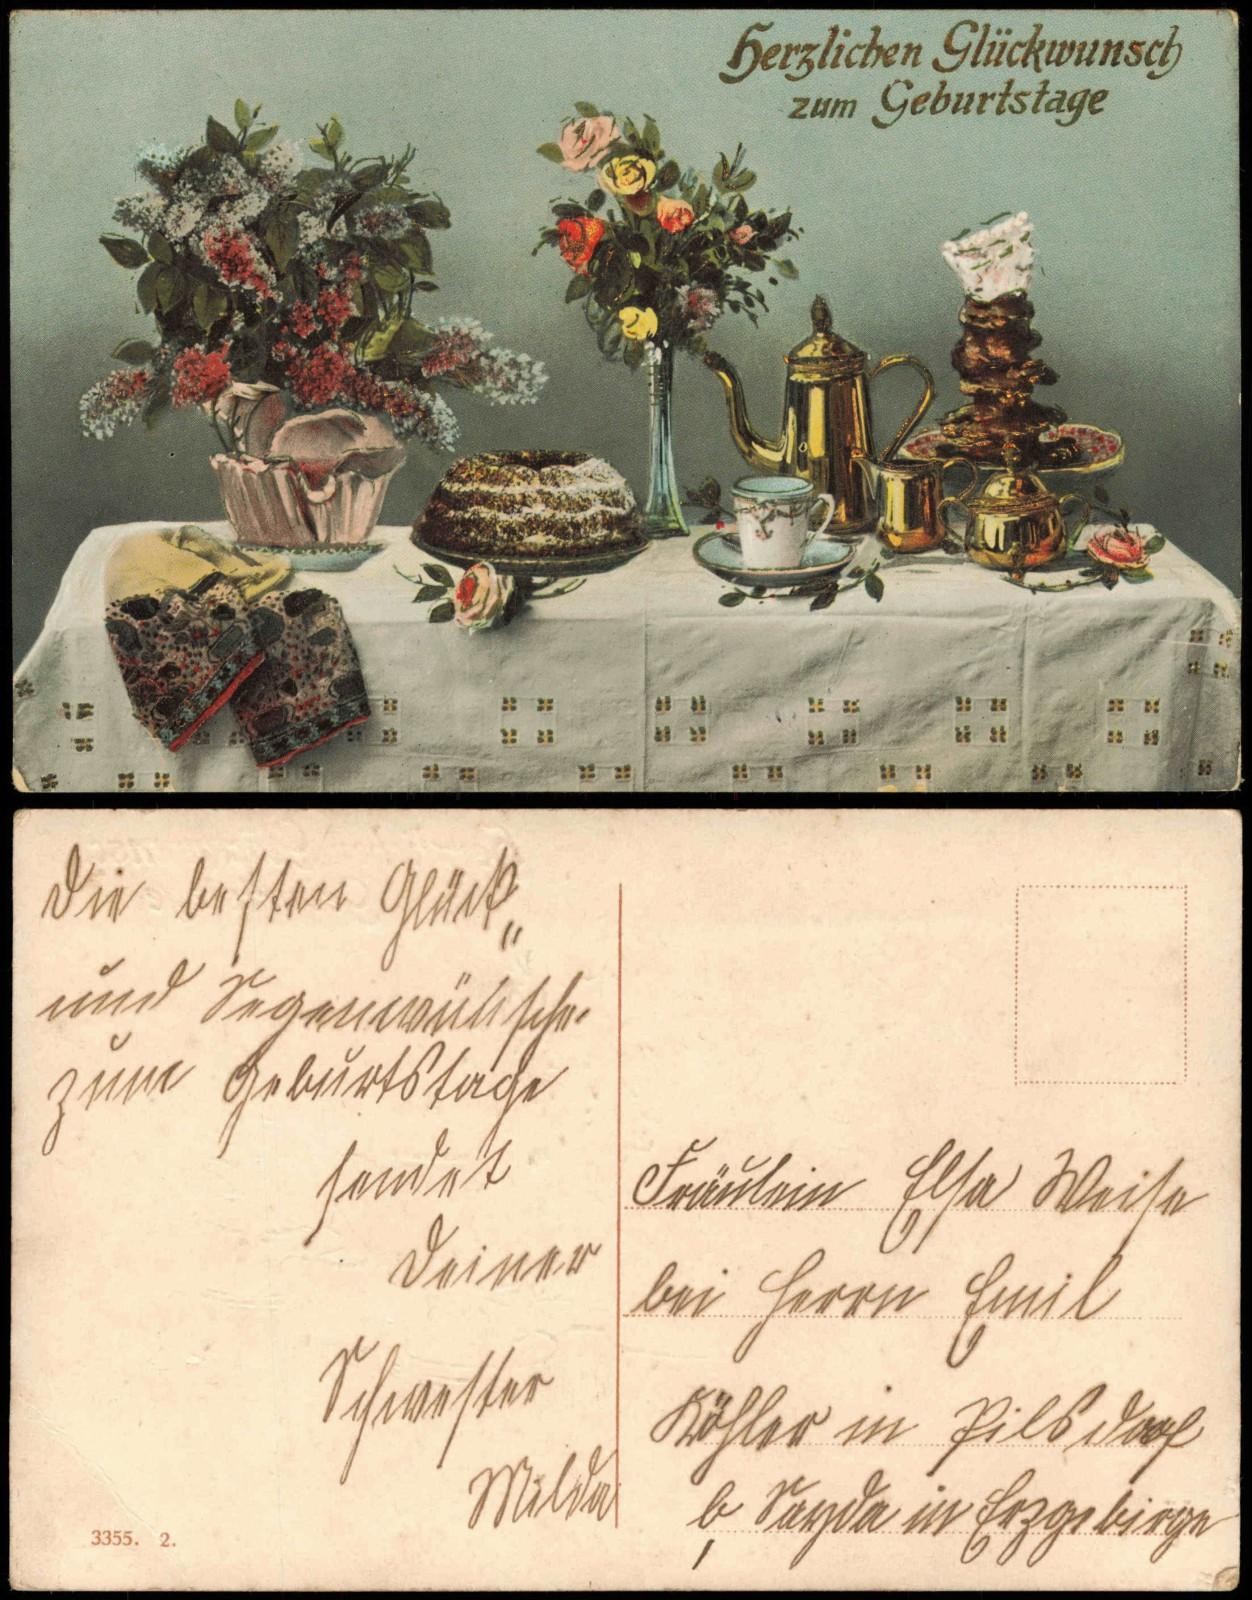 Herzlichen Glückwunsch
zum Geburtstage
Die besten Glück„
und Segenwünsche
zum Geburtstage
sendet
Deiner
Schwester
Milda
3355. 2.
Fräulein Elsa Weise
bei Herrn Emil
Köhler in Pilsdorf
b Sayda in Erzgebirge